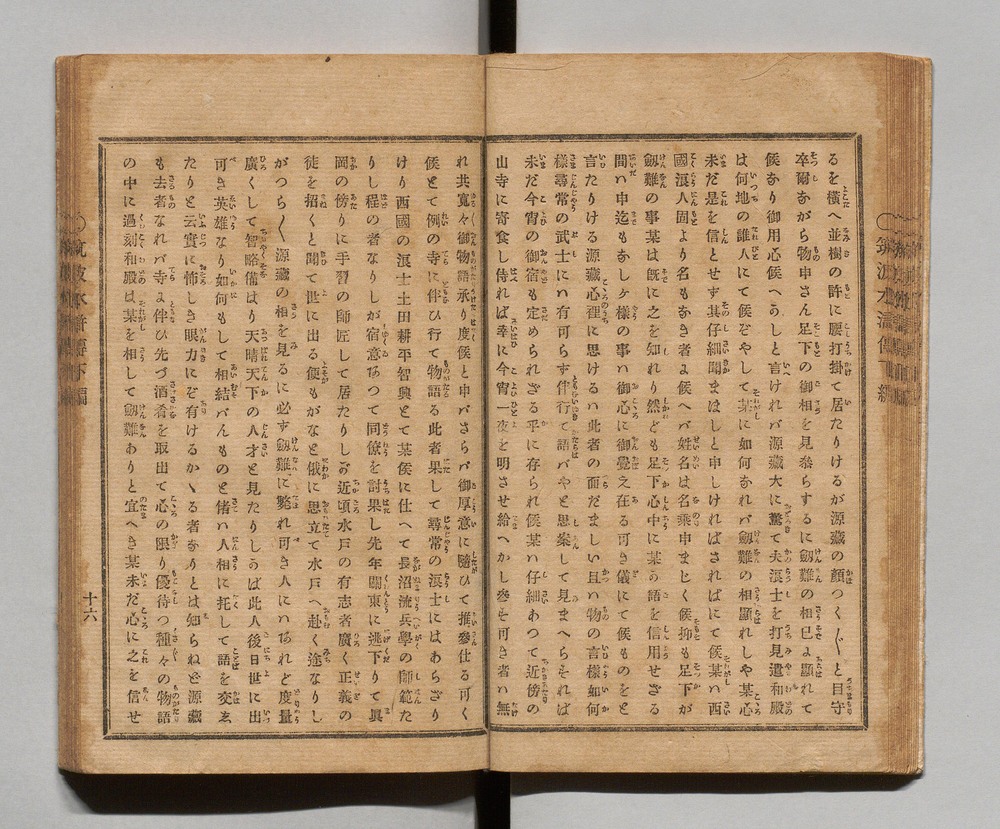 るを橫へ並樹の許に腰打掛て居たりけるが源藏の顏つく〴〵と目守
卒爾ながら物申さん足下の御相を見參らするに劔難の相已よ顯れて
候なり御用心候へかしと言けれバ源藏大に驚て夫浪士を打見遣和殿
は何地の誰人にて候ぞやして某に如何なれバ劔難の相顯れしや某心
未だ是を信とせず其仔細聞まほしと申しければさればにて候某ハ西
國浪人固より名もなき者よ候へバ姓名は名乘申まじく候抑も足下が
劔難の事某は旣に之を知れり然ども足下心中に某の語を信用せざる
間ハ申迄もなし斯樣の事ハ御心に御覺え在る可き儀にて候ものをと
言たりける源藏心裡に思けるハ此者の面だましい且ハ物の言樣如何
樣尋常の武士にハ有可らず伴行て語バやと思案して見まへらそれば
未だ今宵の御宿も定められざる乎に存られ候某ハ仔細あつて近傍の
山寺に寄食し侍れば幸に今宵一夜を明させ給へかし參せ可き者ハ無
れ共寬々御物語承り度候と申バさらバ御厚意に隨ひて推參仕る可く
候とて例の寺に伴ひ行て物語る此者果して尋常の浪士にはあらざり
けり西國の浪士土田耕平智興とて某侯に仕へて長沼流兵學の師範た
りし程の者なりしが宿意あつて同僚を討果し先年關東に逃下りて眞
岡の傍りに手習の師匠して居たりしが近頃水戶の有志者廣く正義の
徒を招くと聞て世に出る便もがなと俄に思立て水戶へ赴く途なりし
がつら〳〵源藏の相を見るに必ず劔難に斃れ可き人にハあれど度量
廣くして智略備はり天晴天下の人才と見たりしかば此人後日世に出
可き英雄なり如何もして相結バんものと偖ハ人相に托して語を交ゑ
たりと云實に怖しき眼力にぞ有けるかゝる者なりとは知らねど源藏
も去者なれバ寺よ伴ひ先づ酒肴を取出て心の限り優待つ種々の物語
の中に過刻和殿は某を相して劔難ありと宜へき某未だ心に之を信せ
十六